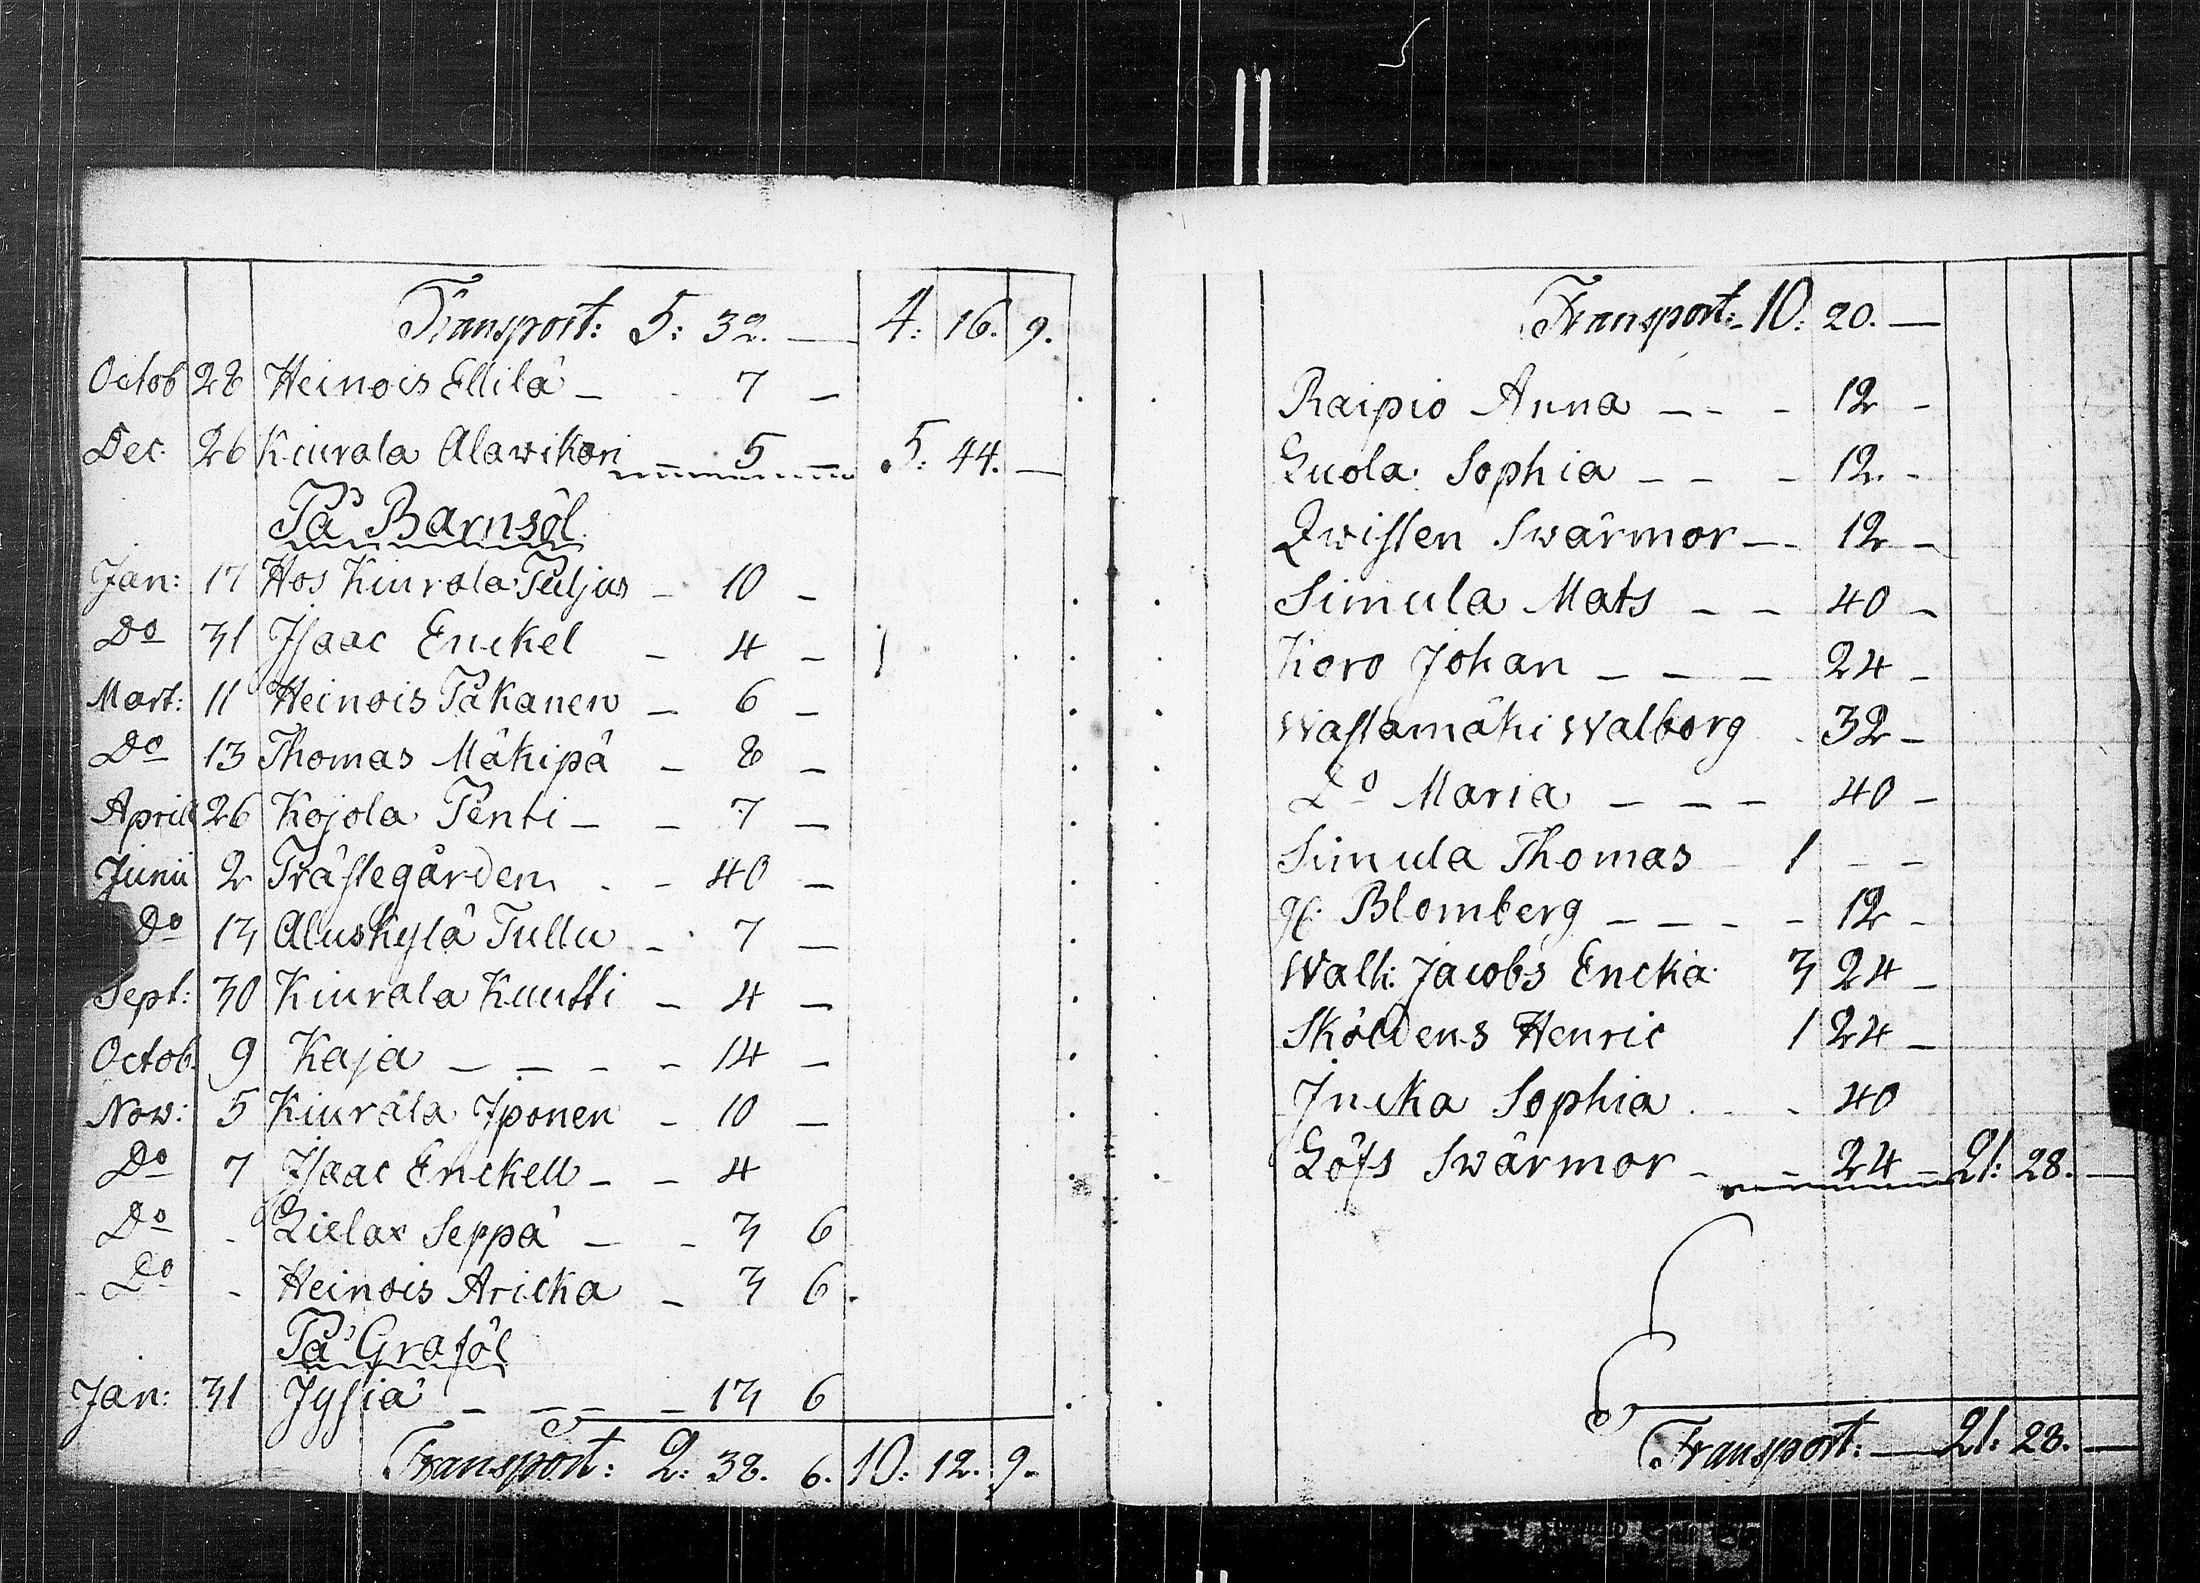 Transport: 5: 32. — 4: 16. 9.
Octob 28 Heinois Ellilä — 7 —
Dec. 26 Kiurala Alawikari 5 — 5: 44. —
På Barnsöl.
Jan: 17 Hos Kiurala Puljus — 10 —
Do 31 Isaac Enckel — 4 —
Mart: 11 Heinois Påkanen — 6 —
Do 13 Thomas Mäkipä — 8 —
April 26 Kojola Penti — — 7 —
Junii 2 Prästegården — 40 —
Do 13 Aluskylä Tullu — 7 —
Sept: 30 Kiurala Kuutti — 4 —
Octob. 9 Kaja — — — — 14 —
Now: 5 Kiurala Iponen — 10 —
Do 7 Isaac Enckell — — 4
Do - Lielax Seppä — — 3 6
Do - Heinois Aricka — 3 6.
På Graföl
Jan: 31 Jysiä — — — — 13 6
Transport: 2: 38. 6. 10: 12. 9.
Transport: 10: 20. —
Raipio Anna — — — 12 —
Luola Sophia — — — 12. —
Qwisten Swärmor — — 12 —
Simula Mats — — 40 —
Koro Johan — — — 24 —
Wastamäki Walborg 32 —
Do Maria — — — 40 —
Simula Thomas 1 — —
Blomberg — — — — 12 —
Walk: Jacobs Encka 3 24 —
Sköldens Henric 1 24 —
Incka Sophia 40
Löfs Swärmor — — 24 — 21: 28. —
Transport: — 21: 28. —